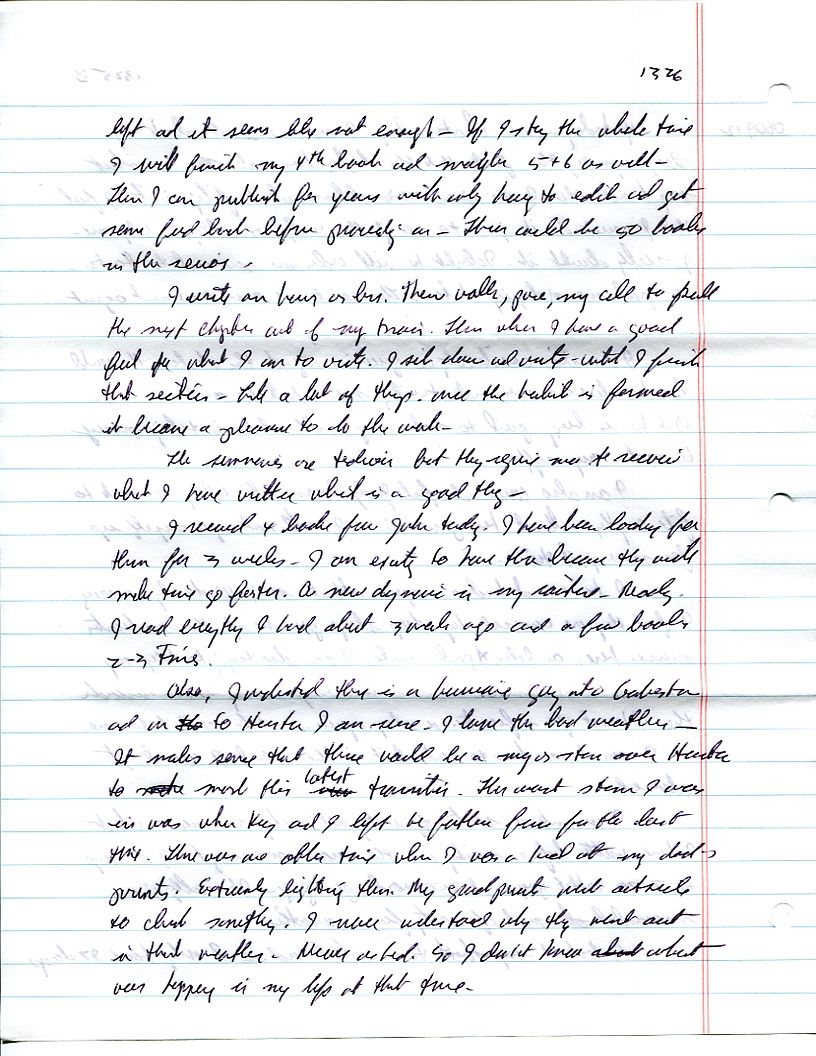 1326
left ad it seems like not enough - If I stay the whole time
I will finish my 4th book ad maybe 5+6 as well -
Then I can publish for years with only havg to edit ad get
some feed back before proceedg on - There could be 50 books
in the series.
I write an hour or les. Then walk, pace, my cell to pull
the next chapter out of my brain. Then when I have a good
feel for what I am to write. I sit down ad write - until I finish
that section - Like a lot of thgs. once the habit is formed
it became a pleasure to do the work -
The summaries are tedious but they require me to review
what I have written which is a good thg -
I received 4 books from John today. I have been lookg for
them for 3 weeks - I am to have them because they will
make time go faster. A new dynamic in my - Ready.
I read everythg I had about 3 weeks ago and a few books
2-3 Times.
Also, I understand there is a hurricane gog into Galveston
ad on to Houston I am sure - I love the bad weather -
It makes sense that there would be a major storm over Houston
to mark this latest transition. The worst storm I was
in was when Kay ad I left for the last
time. There was one other time when I was a kid at my dad's
parents. Extremely lightning then. My grandparents went outside
to check somethg. I never understood why they went out
in that weather - Never asked. So I don't know what
was happeng in my life at that time -